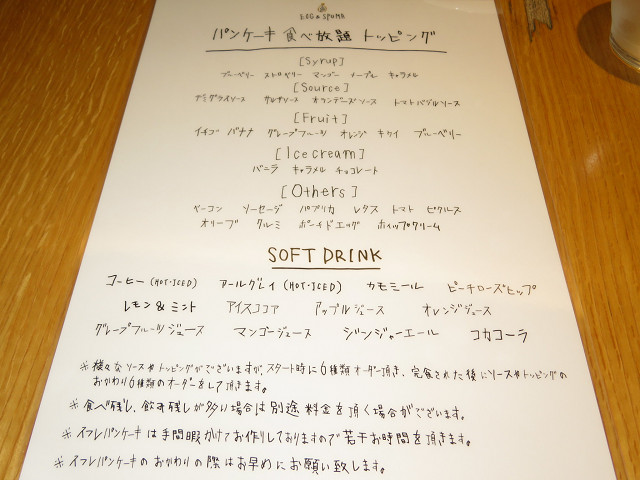 EGG & SPUMA
パンケーキ 食べ放題 トッピング
[Syrup]
ブルーベリー ストロベリー マンゴー メープル キャラメル
[Source]
デミグラスソース サルサソース オランデーズソース トマトバジルソース
[Fruit]
イチゴ バナナ グレープフルーツ オレンジ キウイ ブルーベリー
[Ice cream]
バニラ キャラメル チョコレート
[Others]
ベーコン ソーセージ パプリカ レタス トマト ピクルス
オリーブ クルミ ポーチドエッグ ホイップクリーム
SOFT DRINK
コーヒー (HOT・ICED) アールグレイ (HOT・ICED) カモミール ピーチローズヒップ
レモン & ミント アイスココア アップルジュース オレンジジュース
グレープフルーツジュース マンゴージュース ジンジャーエール コカコーラ
※様々なソースやトッピングがございますが、スタート時に6種類オーダー頂き、完食された後にソースやトッピングの
おかわり6種類のオーダーをして頂きます。
※食べ残し、飲み残しが多い場合は別途 料金を頂く場合がございます。
※スフレパンケーキは手間暇かけてお作りしておりますので若干お時間を頂きます。
※スフレパンケーキのおかわりの際はお早めにお願い致します。